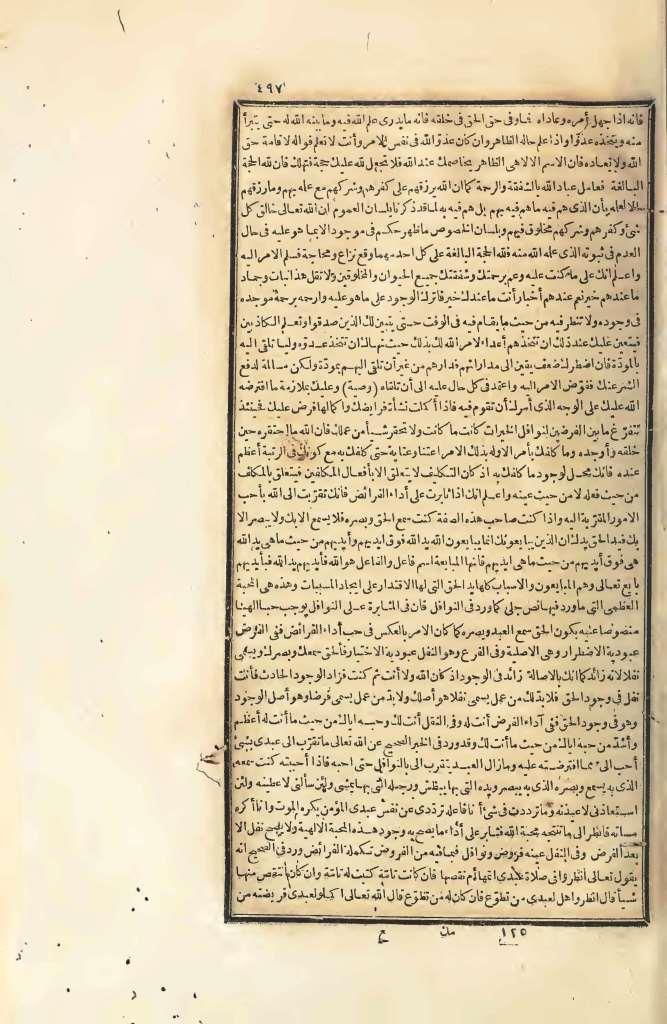 ٤٩٧
فانه اذا جهل أمره وعاداه فما وفى حق الحق فى خلقه فانه ما يدرى علم الله فيه وما بينه الله له حتى يتبرأ
منه ويتخذه عدوا واذا علم حاله الظاهر وان كان عدوا لله فى نفس الامر وأنت لا تعلم فواله لاقامة حق
الله ولا تعاده فان الاسم الالهى الظاهر يخاصمك عند الله فلا تجعل لله عليك حجة فتهلك فان لله الحجة
البالغة فعامل عباد الله بالشفقة والرحمة كما ان الله يرزقهم على كفرهم وشركهم مع علمه بهم وما رزقهم
الا لعلمه بأن الذى هم فيه ما هم فيه بهم بل هم فيه به لما قد ذكرنا بلسان العموم ان الله تعالى خالق كل
شئ وكفرهم وشركهم مخلوق فيهم وبلسان الخصوص ما ظهر حكم فى موجود الا بما هو عليه فى حال
العدم فى ثبوته الذى علمه الله منه فلله الحجة البالغة على كل احد مهما وقع نزاع ومحاجة فسلم الامر اليه
واعلم انك على ما كنت عليه وعم برحمتك وشفقتك جميع الحيوان والمخلوقين ولا تقل هذا نبات وجماد
ما عندهم خبر نعم عندهم أخبار أنت ما عندك خبر فاترك الوجود على ما هو عليه وارحمه برحمة موجده
فى وجوده ولا تنظر فيه من حيث ما يقام فيه فى الوقت حتى يتبين لك الذين صدقوا وتعلم الكاذبين
فيتعين عليك عند ذلك ان تتخذهم أعداء لامر الله لك بذلك حيث نهاك ان تتخذ عدوه وليا تلقى اليه
بالمودة فان اضطرك ضعف يقين الى مداراتهم فدارهم من غير أن تلقى اليهم بمودة ولكن مسالمة لدفع
الشر عنك ففوض الامر اليه واعتمد فى كل حال عليه الى أن تلقاه (وصية) وعليك بملازمة ما افترضه
الله عليك على الوجه الذى أمرك أن تقوم فيه فاذا أكملت نشأة فرائضك واكمالها فرض عليك فحينئذ
تتفرغ ما بين الفرضين لنوافل الخيرات كانت ما كانت ولا تحقر شيأ من عملك فان الله ما احتقره حين
خلقه وأوجده وما كلفك بأمر الا وله بذلك الامر اعتناء وعناية حتى كلفك به مع كونك فى الرتبة أعظم
عنده فانك محل لوجود ما كلفك به اذ كان التكليف لا يتعلق الا بأفعال المكلفين فيتعلق بالمكلف
من حيث فعله لا من حيث عينه واعلم انك اذا ثابرت على أداء الفرائض فانك تقربت الى الله بأحب
الامور المقربة اليه واذا كنت صاحب هذه الصفة كنت سمع الحق وبصره فلا يسمع الا بك ولا يبصر الا
بك فيد الحق يدك ان الذين يبايعونك انما يبايعون الله يد الله فوق ايديهم وأيديهم من حيث ما هى يد الله
هى فوق أيديهم من حيث ما هى ايديهم فانها المبايعة اسم فاعل والفاعل هو الله فأيديهم يد الله فبأيديهم
بايع تعالى وهم المبايعون والاسباب كلها يد الحق التى لها الاقتدار على ايجاد المسببات وهذه هى المحبة
العظمى التى ما ورد فيها نص جلى كما ورد فى النوافل فان فى المثابرة على النوافل يوجب حبا الهيا
منصوصا عليه يكون الحق سمع العبد وبصره كما كان الامر بالعكس فى حب أداء الفرائض ففى الفرض
عبودية الاضطرار وهى الاصلية وفى الفرع وهو النفل عبودية الاختيار فالحق سمعك وبصرك ويسمى
نفلا لانه زائد كما انك بالاصالة زائد فى الوجود اذ كان الله ولا أنت ثم كنت فزاد الوجود الحادث فأنت
نفل فى وجود الحق فلا بد لك من عمل يسمى نفلا هو أصلك ولا بد من عمل يسمى فرضا وهو أصل الوجود
وهو فى وجود الحق ففى أداء الفرض أنت له وفى النفل أنت لك وحبه اياك من حيث ما أنت له أعظم
وأشد من حبه اياك من حيث ما أنت لك وقد ورد فى الخبر الصحيح عن الله تعالى ما تقرب الى عبدى بشئ
أحب الى مما افترضته عليه وما زال العبد يتقرب الى بالنوافل حتى احبه فاذا أحببته كنت سمعه
الذى به يسمع وبصره الذى به يبصر ويده التى بها يبطش ورجله التى بها يمشى ولئن سألنى لاعطينه ولئن
استعاذنى لاعيذنه وما ترددت فى شئ أنا فاعله ترددى عن نفس عبدى المؤمن يكره الموت وانا أكره
مساته فانظر الى ما تنتجه محبة الله فثابر على أداء ما يصح به وجود هذه المحبة الالهية ولا يصح نفل الا
بعد الفرض وفى النفل عينه فروض ونوافل فبما فيه من الفروض تكمله الفرائض ورد فى الصحيح انه
يقول تعالى انظروا فى صلاة عبدى اتمها أم نقصها فان كانت تامة كتبت له تامة وان كان انتقص منها
شيأ قال انظروا هل لعبدى من تطوع فان كان له من تطوع قال الله تعالى اكملوا لعبدى فريضته من
١٢٥ مك ح